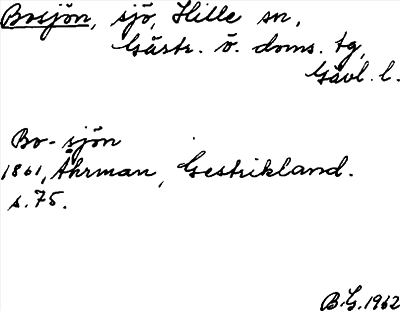 Bosjön, sjö, Hille sn,
Gästr. ö. doms. tg,
Gävl. l.
Bo-sjön
1861, Åhrman, Gestrikland.
s. 75.
B.G. 1962